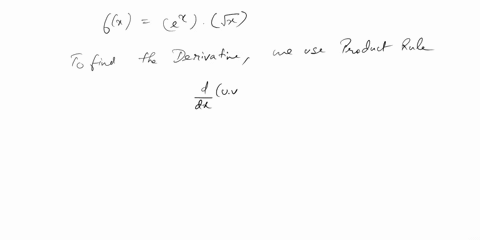 f(x) = (e^x) · (√x)
To find the Derivative, we use Product Rule
d/dx (u.v